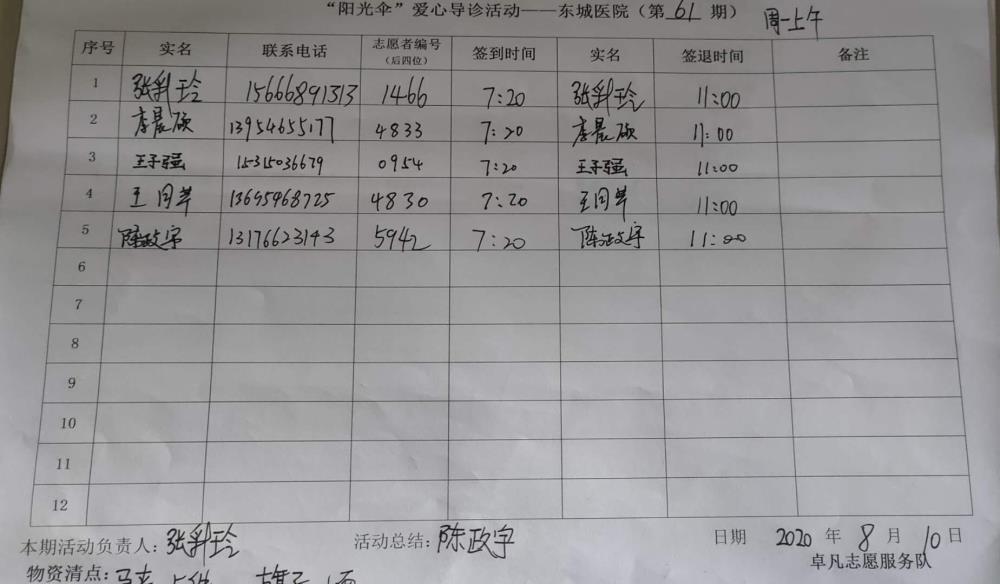 “阳光伞”爱心导诊活动——东城医院（第 61 期） 周一上午
序号 实名 联系电话 志愿者编号（后四位） 签到时间 实名 签退时间 备注
1 张 玲 15666891313 1466 7:20 张 玲 11:00
2 李晨硕 13954655177 4833 7:20 李晨硕 11:00
3 王子强 15315036679 0954 7:20 王子强 11:00
4 王 苹 13695968725 4830 7:20 王 苹 11:00
5 陈政宇 13176623143 5942 7:20 陈政宇 11:00
6
7
8
9
10
11
12
本期活动负责人：张 玲 活动总结：陈政宇 日期 2020 年 8 月 10 日
卓凡志愿服务队
物资清点：